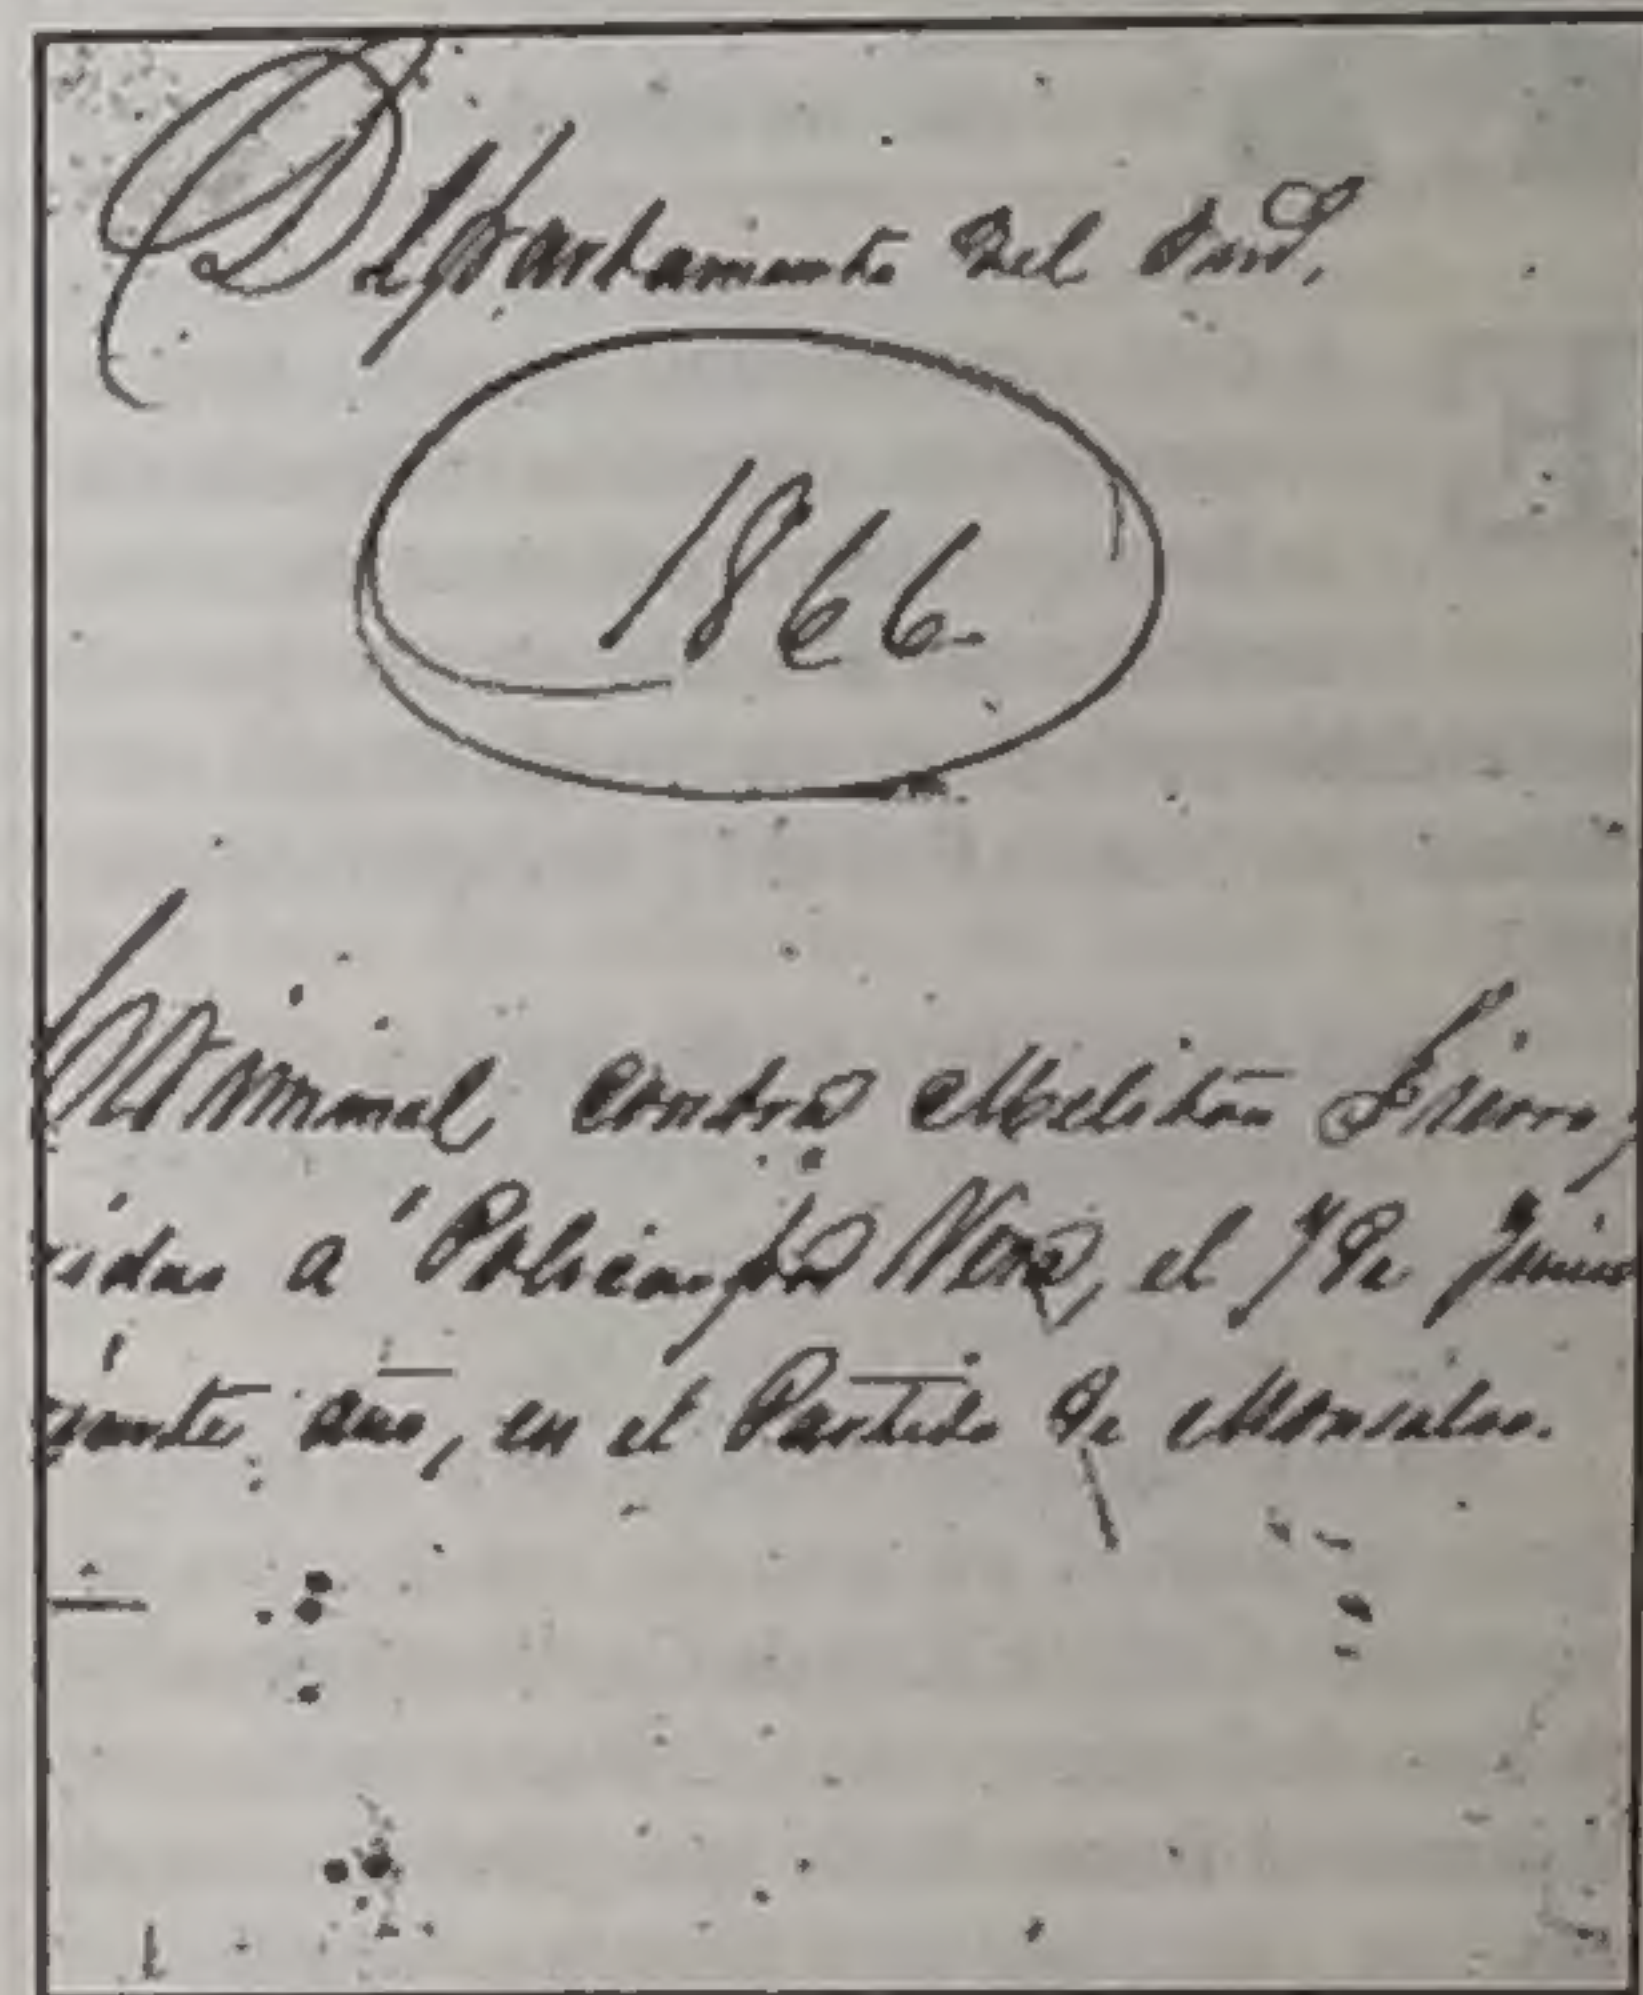 Departamento del Sud.
1866
Criminal contra Meliton Fierro,
ridas a Policarpo Vera, el 7 de Junio
año, en el Partido de Monsalvo.